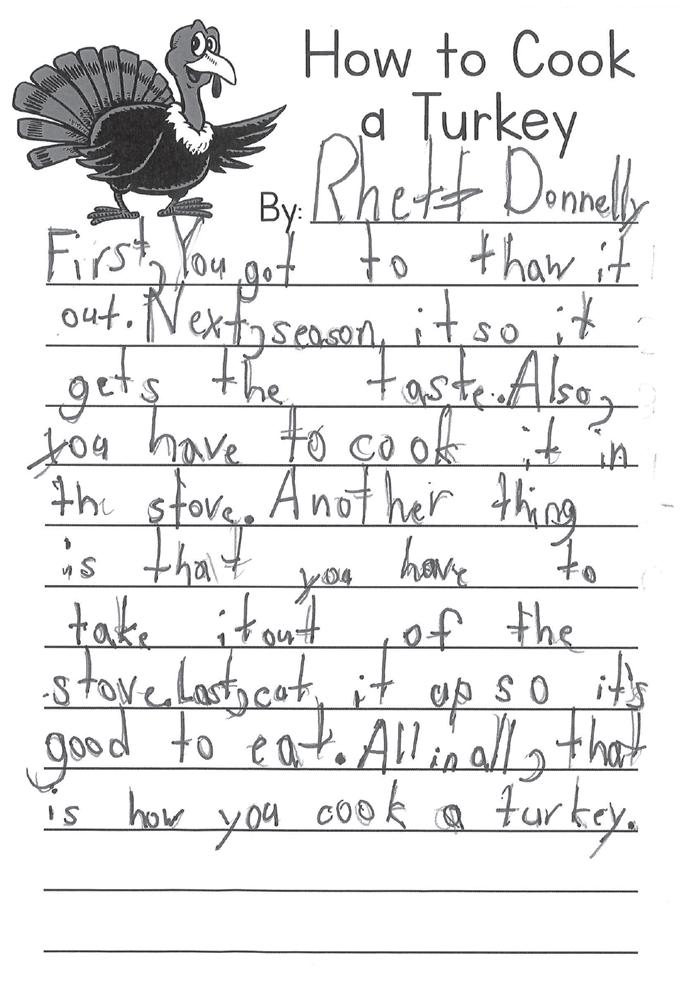 How to Cook
a Turkey
By: Rhett Donnelly
First, You got to thaw it
out. Next, season it so it
gets the taste. Also,
you have to cook it in
the stove. Another thing
is that you have to
take it out of the
stove. Last, cut it up so it's
good to eat. All in all, that
is how you cook a turkey.